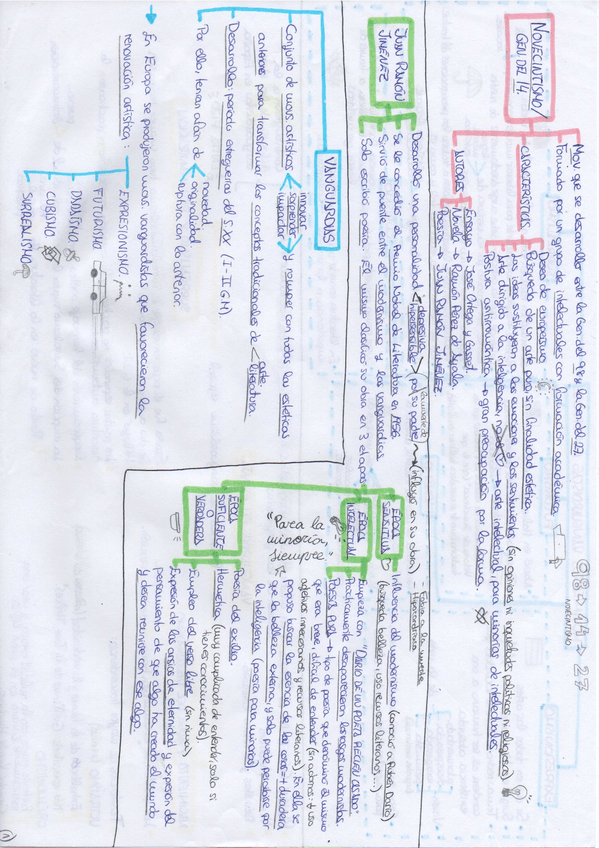 NOVECINTISMO/
GEN DEL 14.
Mov. que se desarrolla entre la Gen del 98 y la Gen del 27.
Formado por un grupo de intelectuales con formación académica.
98 → 14 → 27
NOVECINTISMO
CARACTERÍSTICAS
Deseo de europeísmo.
Búsqueda de un arte puro sin finalidad estética.
Las ideas sustituyen a las emociones y los sentimientos (sin opiniones ni inquietudes políticas ni religiosas)
Arte dirigido a la inteligencia, no al → arte intelectual, para minorías de intelectuales.
Postura antirromántica → gran preocupación por la forma.
AUTORES
Ensayo → José Ortega y Gasset.
Novela → Ramón Pérez de Ayala.
Poesía → JUAN RAMÓN JIMÉNEZ.
JUAN RAMÓN
JIMÉNEZ
Desarrolla una personalidad depresiva
hipersensible
por su padre (influye en su obra)
- Fobia a la muerte
- Hipocondriaco
Se le concedió el Premio Nobel de Literatura en 1956
Sirvió de puente entre el modernismo y las vanguardias
Solo escribió poesía. Él mismo clasificó su obra en 3 etapas
ÉPOCA
SENSITIVA
Influencia del modernismo (conoció a Rubén Darío)
(búsqueda belleza, uso recursos literarios...)
ÉPOCA
INTELECTUAL
Empieza con "DIARIO DE UN POETA RECIÉN CASADO".
Prácticamente desaparecen los rasgos modernistas.
POESÍA PURA → tipo de poesía que denominó él mismo
que era breve, difícil de entender (sin adornos: ↓ uso
adjetivos innecesarios y recursos literarios). En ella se
propuso buscar la esencia de las cosas = + duradera
que la belleza externa, y solo puede percibirse por
la inteligencia (poesía para minorías).
"Para la
minoría,
siempre"
ÉPOCA
SUFICIENTE
O
VERDADERA
Poesía del exilio.
Hermética (muy complicada de entender, solo si
tienes conocimientos).
Empleo del verso libre (sin rima)
Expresión de las ansias de eternidad y expresión del
pensamiento de que algo ha creado el mundo
y desea reunirse con ese algo.
VANGUARDIAS
Conjunto de movs. artísticos
innovar
sorprender
impactar
y romper con todas las estéticas
anteriores para transformar los conceptos tradicionales de
arte
literatura
Desarrollo: período entreguerras del S.XX (I-II GM)
Por ello, tenían afán de
novedad
originalidad
ruptura con lo anterior
→ En Europa se produjeron movs. vanguardistas que favorecieron la
renovación artística:
EXPRESIONISMO
FUTURISMO
DADAÍSMO
CUBISMO
SURREALISMO
1